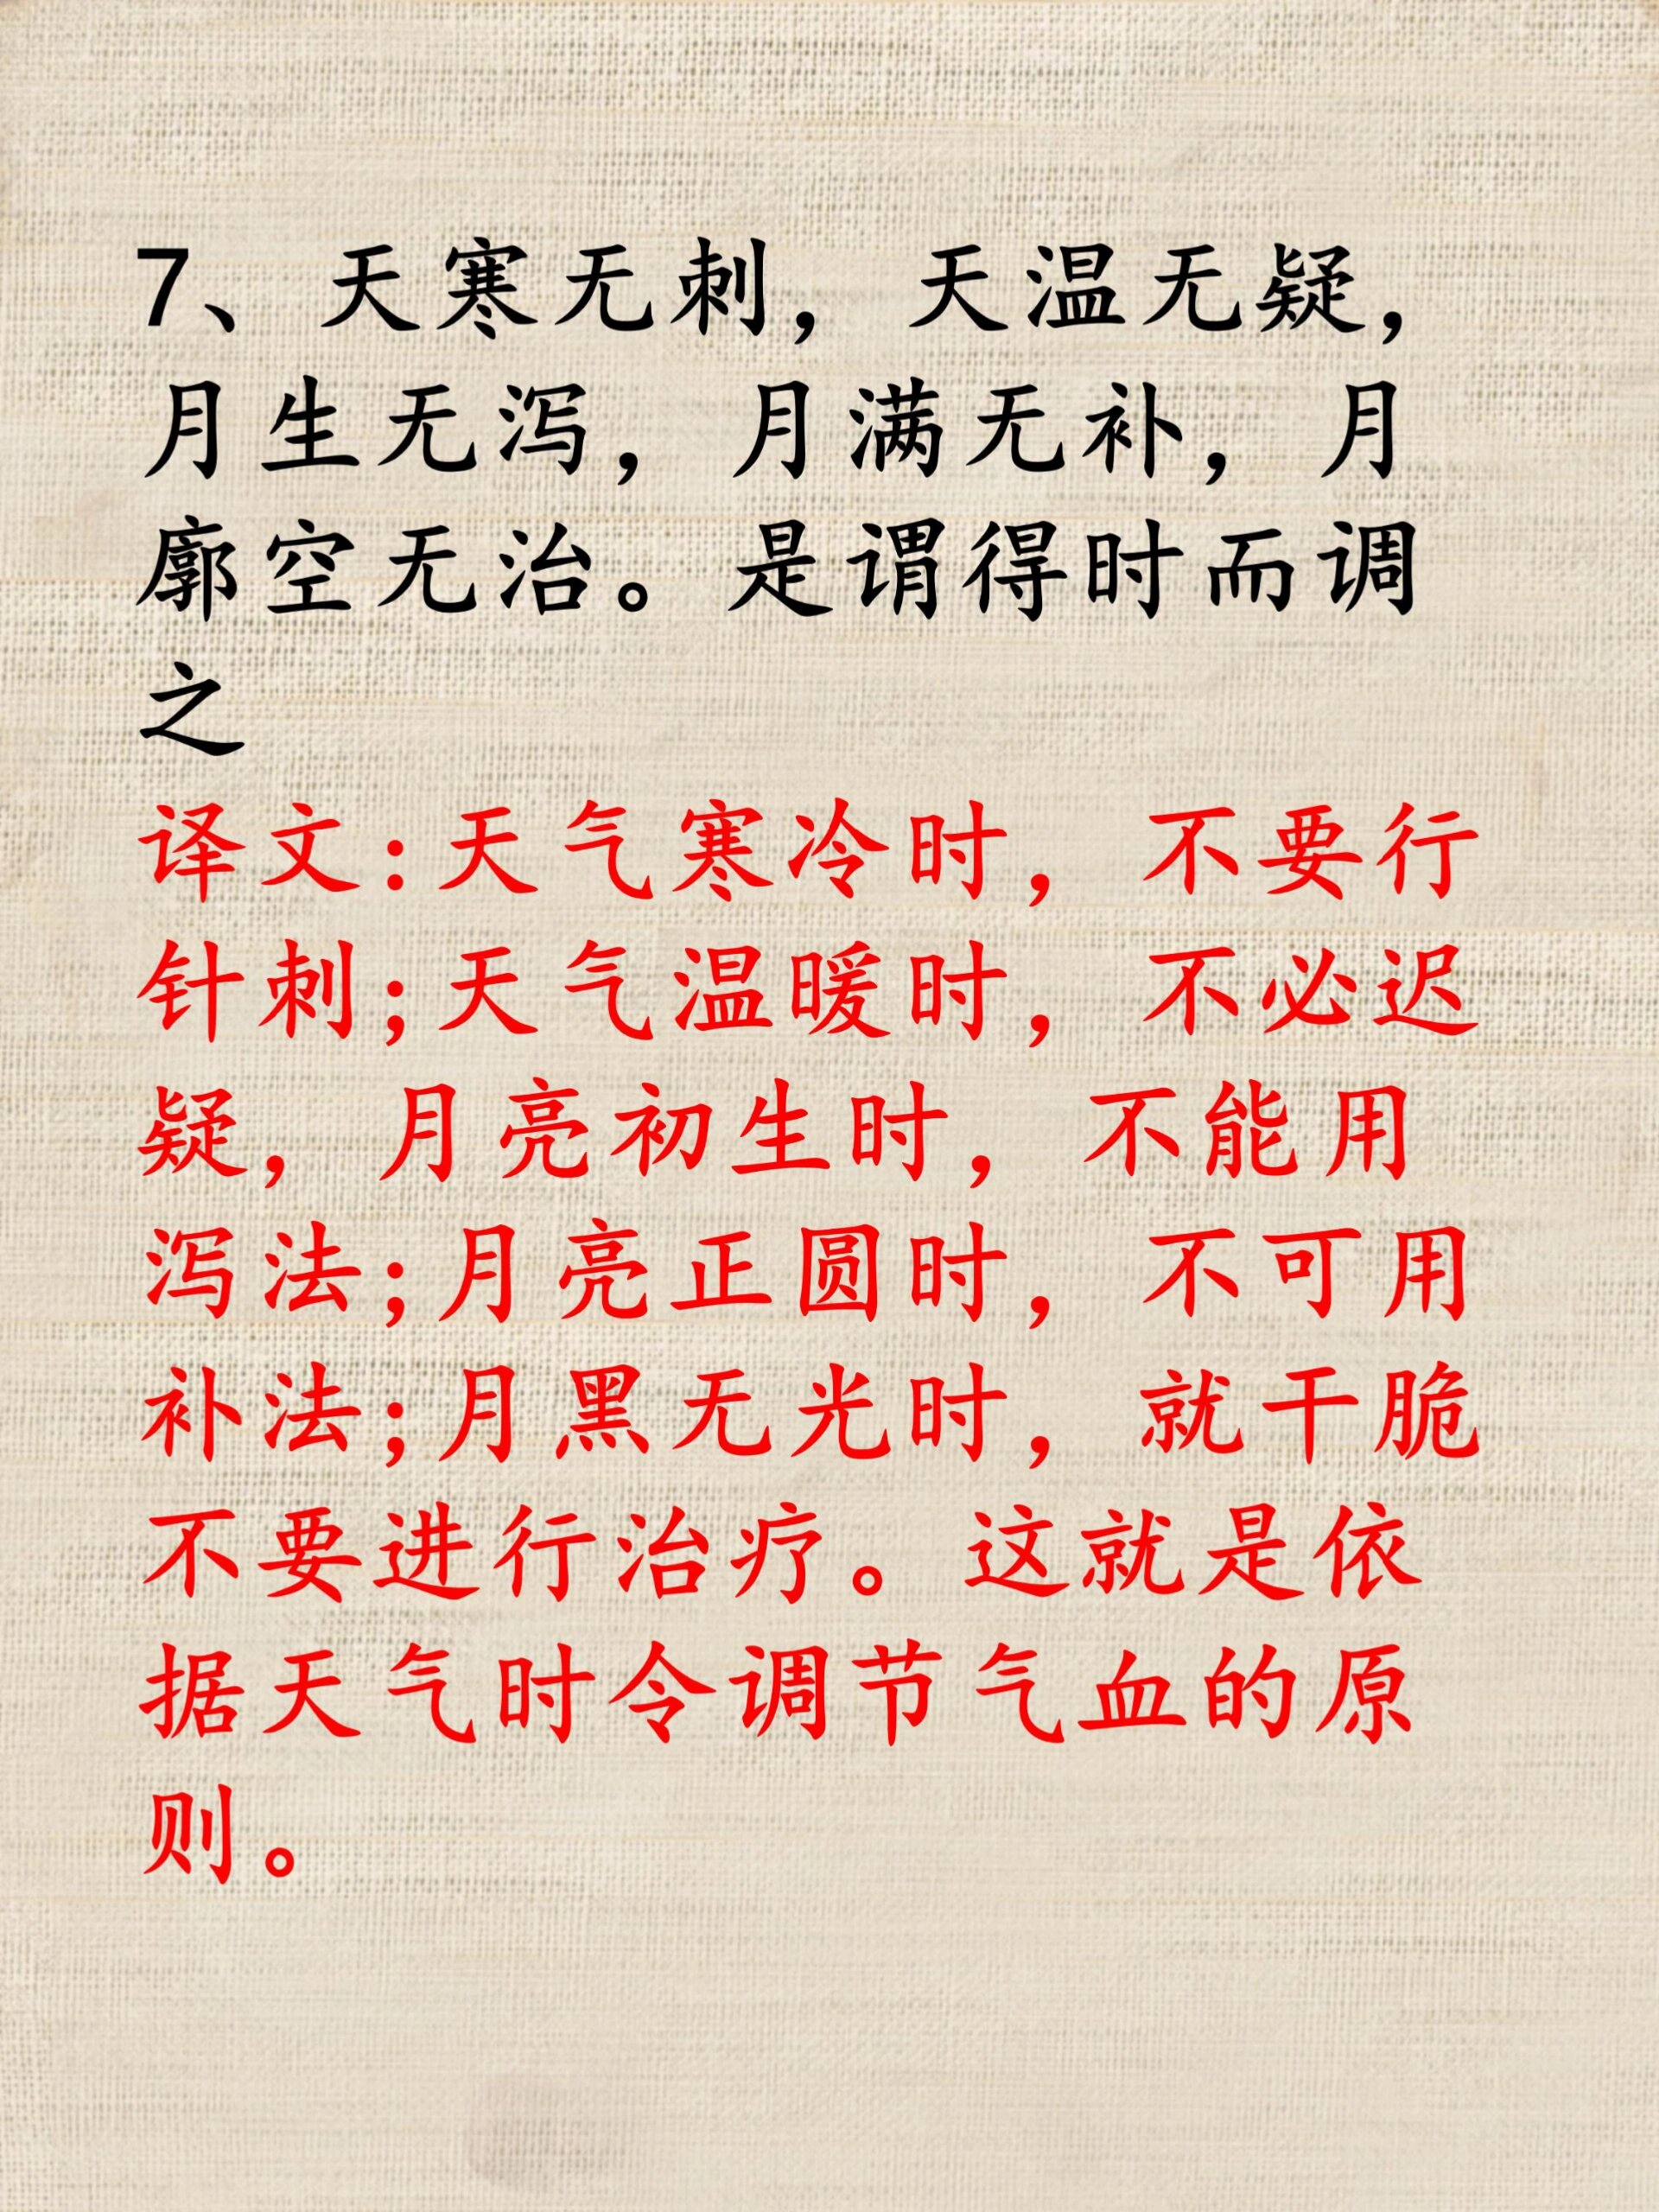 7、天寒无刺，天温无疑，
月生无泻，月满无补，月
廓空无治。是谓得时而调
之
译文:天气寒冷时，不要行
针刺;天气温暖时，不必迟
疑，月亮初生时，不能用
泻法;月亮正圆时，不可用
补法;月黑无光时，就干脆
不要进行治疗。这就是依
据天气时令调节气血的原
则。